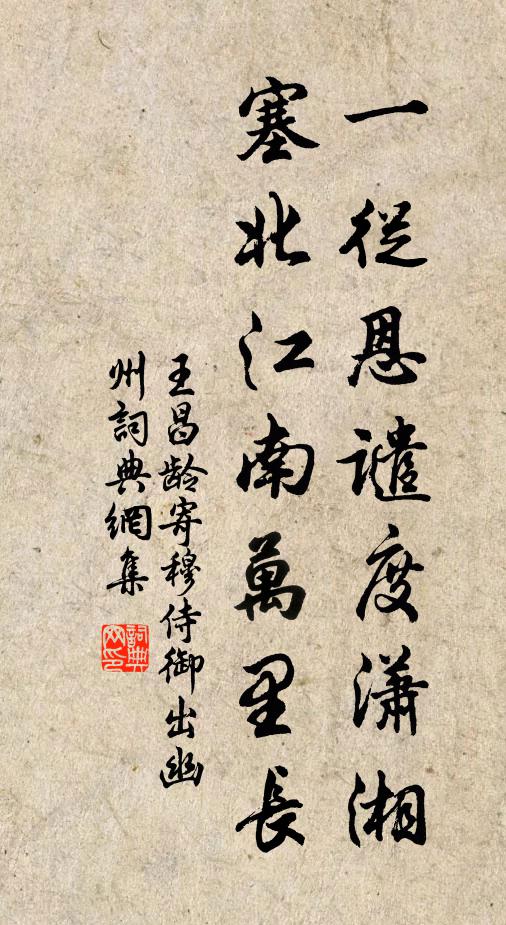 一從恩譴度瀟湘
塞北江南萬里長
王昌龄寄穆侍御出幽
州詞典網集
詞典
网印